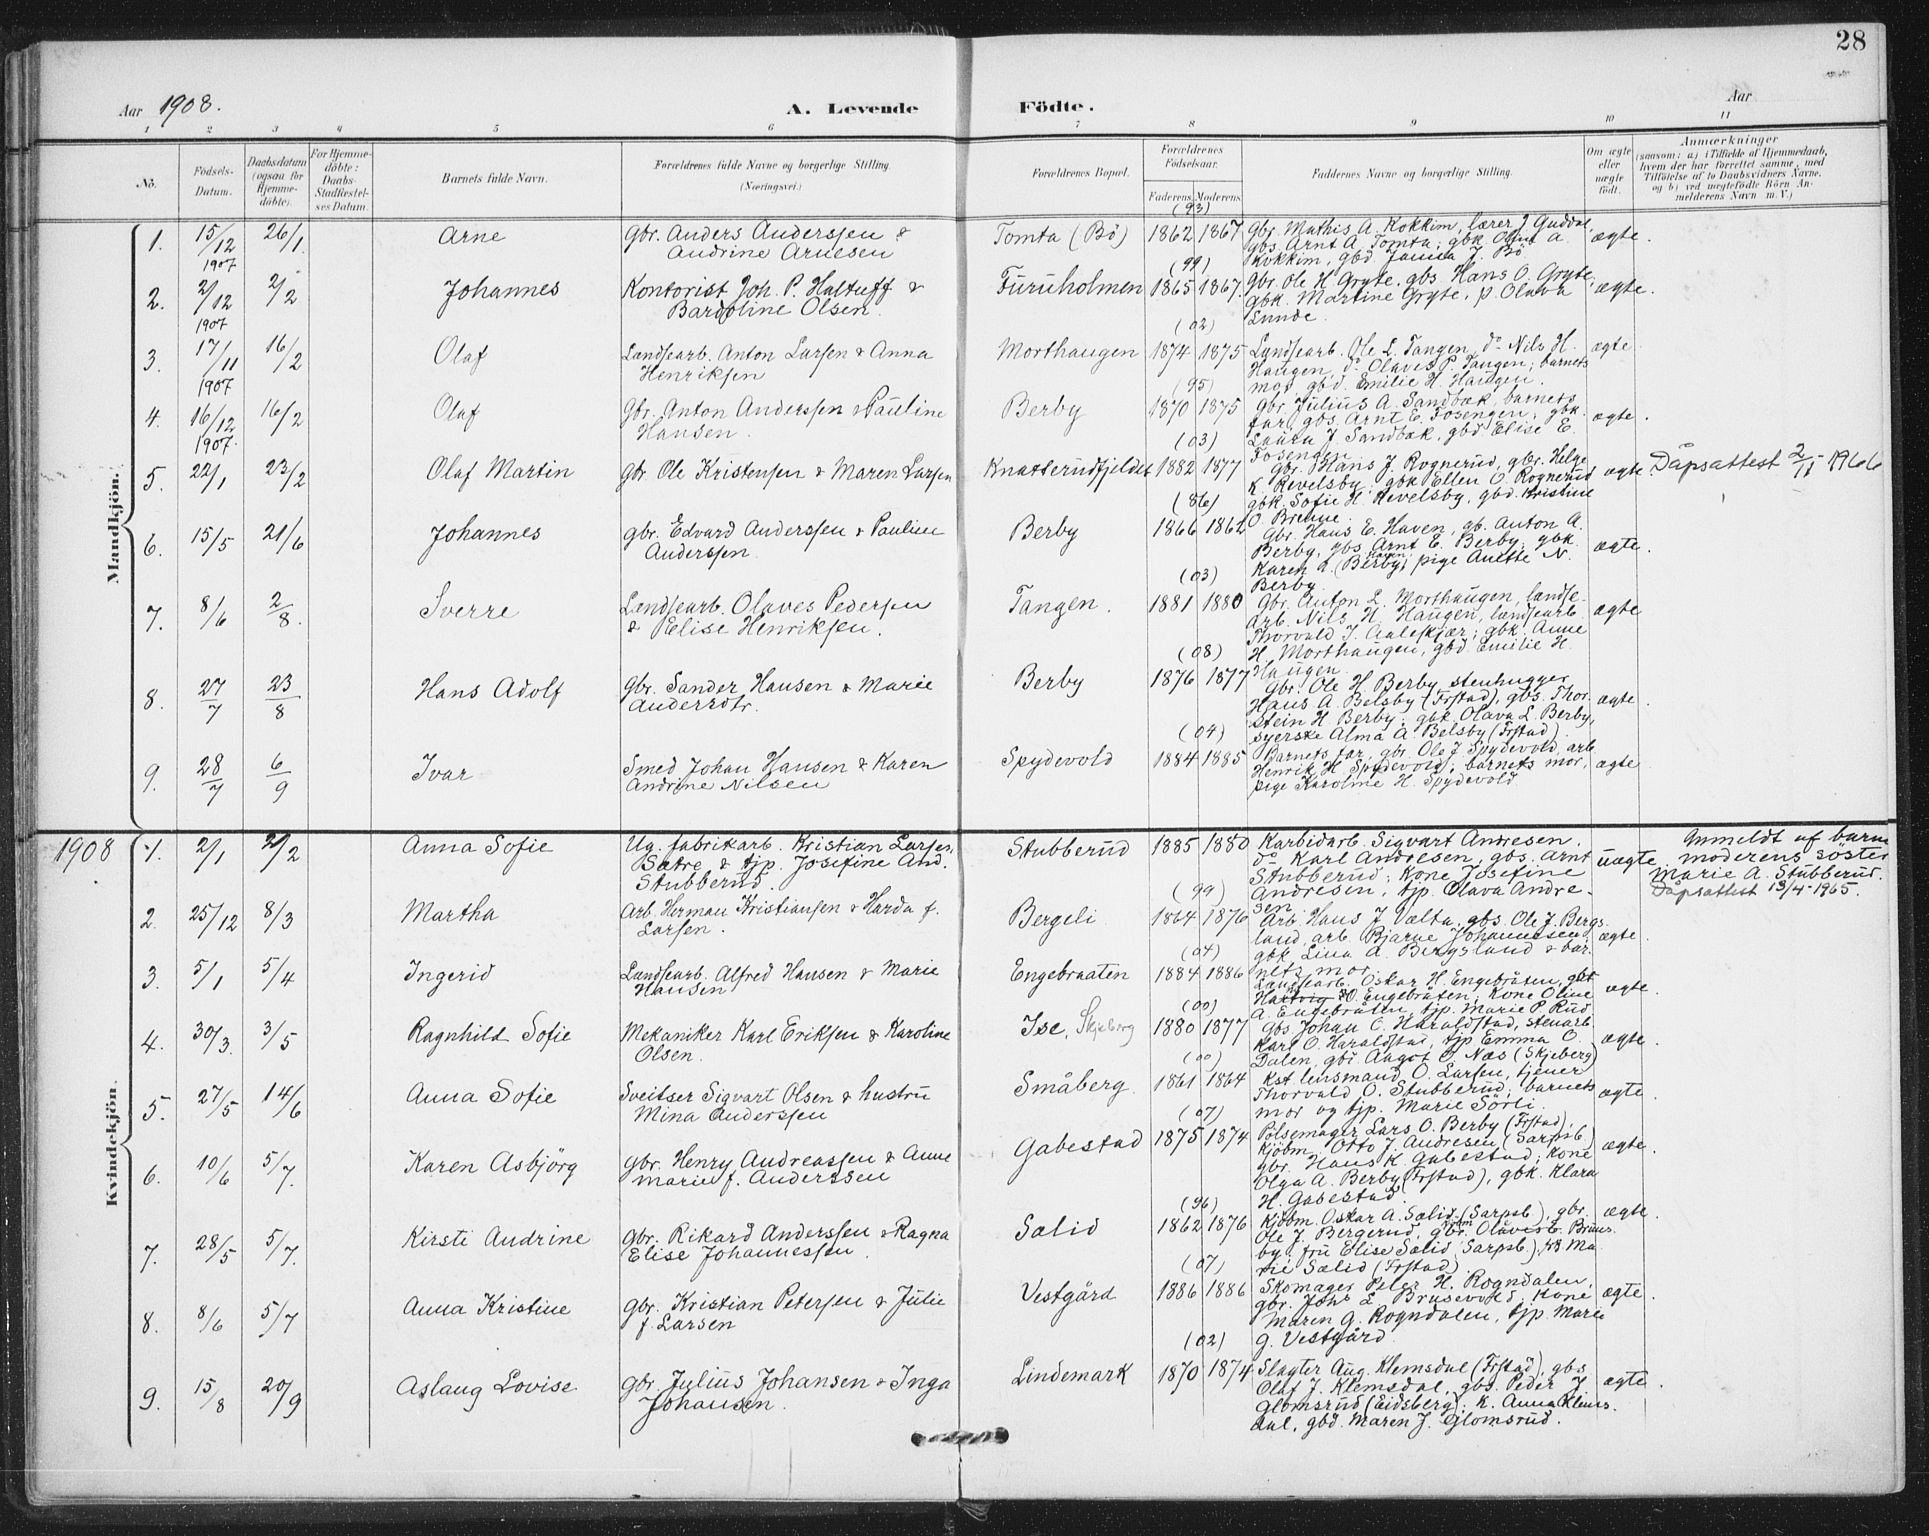 28
Aar 1908. A. Levende Födte. Aar
1 2 3 4 5 6 7 8 9 10 11
No. Födsels-Datum. Daabsdatum (ogsaa for Hjemme-döbte). For Hjemme-döbte: Daabs-Stadfestel-ses Datum. Barnets fulde Navn. Forældrenes fulde Navne og borgerlige Stilling. (Næringsvei.) Forældrenes Bopæl. Forældrenes Födselsaar. Faderens Moderens Faddernes Navne og borgerlige Stilling. Om ægte eller uægte födt.
Anmærkninger
(saasom: a) i Tilfælde af Hjemmedaab,
hvem der har forrettet samme, med
Tilföielse af to Daabsvidners Navne.
og b) ved uægtefödte Börn An-
melderens Navn m. V.)
Mandkjön.
1. 15/12 1907 26/1. Arne Gbr. Anders Anderssen &
Andrine Arnesen
Tomta (Bö) (93) 1862 1867 Gbr. Mathis A. Kokkim, lærer J Guddal,
gbs. Arnt A. Tomta; gbk Oline A.
Kokkim, gbd Janna J. Bö
ægte.
2. 2/12 1907 2/2 Johannes Kontorist Joh. P. Haltuff &
Bardoline Olsen.
Furuholmen (99) 1865 1867. Gbr. Ole H Gryte, gbs Hans O. Gryte,
gbk. Martine Gryte, p. Olava
Lunde.
ægte.
3. 17/11 1907 16/2 Olaf Landsearb. Anton Larsen & Anna
Henriksen
Morthaugen (02) 1874 1875 Landsearb. Ole L. Tangen, do Nils H.
Haugen, do Olaves P. Tangen; barnets
mor, gbd. Emilie H. Haugen.
ægte
4. 16/12 1907. 16/2 Olaf Gbr. Anton Anderssen & Pauline
Hansen.
Berby (95) 1870 1875 Gbr. Julius A. Sandbæk, barnets
far, gbs. Arnt E. Fosengen; gbk.
Laura J. Sandbæk, gbd Elise E.
Fosengen
ægte.
5. 22/1 23/2 Olaf Martin Gbr Ole Kristensen & Maren Larsen
Knatterudfjeldet (03) 1882 1877 Gbr. Hans J. Rognerud, gbr. Helge
K. Kevelsby; gbk Ellen O. Rognerud
gbk. Sofie H. Kevelsby, gbd. Kristine
O Brenne.
ægte. Dåpsattest 2/11-1966
6. 15/5 21/6 Johannes gbr. Edvard Anderssen & Pauline
Anderssen.
Berby (86) 1866 1862 Gbr. Hans E. Haven, gb. Anton A.
Berby, gbs. Arnt E. Berby; gbk.
Karen L. Berby, pige Anette N.
Berby.
ægte.
7. 8/6 2/8. Sverre Landsearb. Olaves Pedersen
& Elise Henriksen.
Tangen. (03) 1881 1880 Gbr. Anton L. Morthaugen, landse-
arb. Nils H. Haugen, landsearb
Thorvald J. Aaleskjær; gbk. Anne
H. Morthaugen, gbd Emilie H.
Haugen
ægte
8. 27/7 23/8 Hans Adolf Gbr. Sander Hansen & Marie
Andersdtr.
Berby (08) 1876 1877 Gbr. Ole H Berby, stenhugger
Hans A. Belsby (Frstad), gbs. Thor-
stein H. Berby; gbk. Olava L. Berby,
syerske Alma A. Belsby (Frstad).
ægte.
9. 28/7 6/9 Ivar Smed Johan Hansen & Karen
Andrine Nilsen
Spydevold (04) 1884 1885 Barnets far, gbr. Ole J Spydevold, arb
Henrik H. Spydevold; barnets mor,
pige Karoline H. Spydevold
ægte
Kvindekjön.
1908 1. 2/1 2/2 Anna Sofie Ug. fabrikarb. Kristian Larsen
Sætre & tjp. Josefine And.
Stubberud.
Stubberud 1885 1880 Karbidarb. Sigvart Andresen.
do Karl Andresen, gbs. Arnt
Stubberud; Kone Josefine
Andresen, tjp. Olava Andre-
sen.
uægte. Anmeldt af barne
moderens söster
Marie A. Stubberud.
Dåpsattest 13/4-1965.
2. 25/12 8/3 Martha Arb. Herman Kristiansen & Harda f.
Larsen.
Bergeli (99) 1864 1876 Arb. Hans J Vælta, gbs Ole J. Bergs-
land, arb. Bjarne Johannessen;
gbk Lina A. Bergsland & bar-
nets mor
ægte.
3. 5/1 5/4 Ingerid Landsearb. Alfred Hansen & Marie
Hansen
Engebraaten (04) 1884 1886 Landsearb. Oskar H. Engebråten, gbs
O. Engebråten; Kone Oline
A Engebråten, tjp. Marie P. Rud.
ægte.
4. 30/3. 3/5 Ragnhild Sofie Mekaniker Karl Eriksen & Karoline
Olsen.
Ise, Skjeberg (00) 1880 1877 Gbs. Johan O. Haraldstad, stenarb.
Karl O. Haraldstad, tjp Emma O.
Dalen, gbd. Aagot O. Næs (Skjeberg)
ægte.
5. 27/5 14/6 Anna Sofie Sveitser Sigvart Olsen & hustru
Mina Anderssen
Småberg (00) 1861 1864 Kst lensmand O. Larsen, tjener
Thorvald O. Stubberud; barnets
mor og tjp. Marie Sörli.
ægte.
6. 10/6 5/7. Karen Asbjörg Gbr. Henry Andreassen & Anne
Marie f. Anderssen
Gabestad (07) 1875 1874 Pölsemager Lars O. Berby (Frstad),
Kjöbm. Otto J. Andresen (Sarpsb)
gbr. Hans K. Gabestad; Kone
Olga A. Berby (Frstad), gbk. Klara
H. Gabestad.
ægte.
7. 28/5 5/7. Kirsti Andrine Gbr. Rikard Anderssen & Ragna
Elise Johannessen.
Sælid (96) 1862 1876 Kjöbm. Oskar A. Sælid (Sarpsb), gbr.
Ole J. Bergerud, gbr. Olaves E. Bruns-
by, fru Elise Sælid (Sarpsb), frk Ma-
rie Sælid (Frstad)
ægte.
8. 8/6 5/7 Anna Kristine Gbr. Kristian Petersen & Julie
f. Larsen
Vestgård (07) 1886 1886 Skomager Peter H. Rogndalen,
gbr. Johs E Brusevold; Kone
Maren G. Rogndalen, tjp. Marie
G. Vestgård.
ægte.
9. 15/8 20/9 Aslaug Lovise Gbr. Julius Johansen & Inga
Johansen.
Lindemark (02) 1870 1874 Slagter Aug. Klemsdal (Frstad), gbs
Olaf J. Klemsdal, gbs. Peder J
Glomsrud (Eidsberg); K. Anna Klems-
dal, gbd. Maren J. Glomsrud.
ægte.